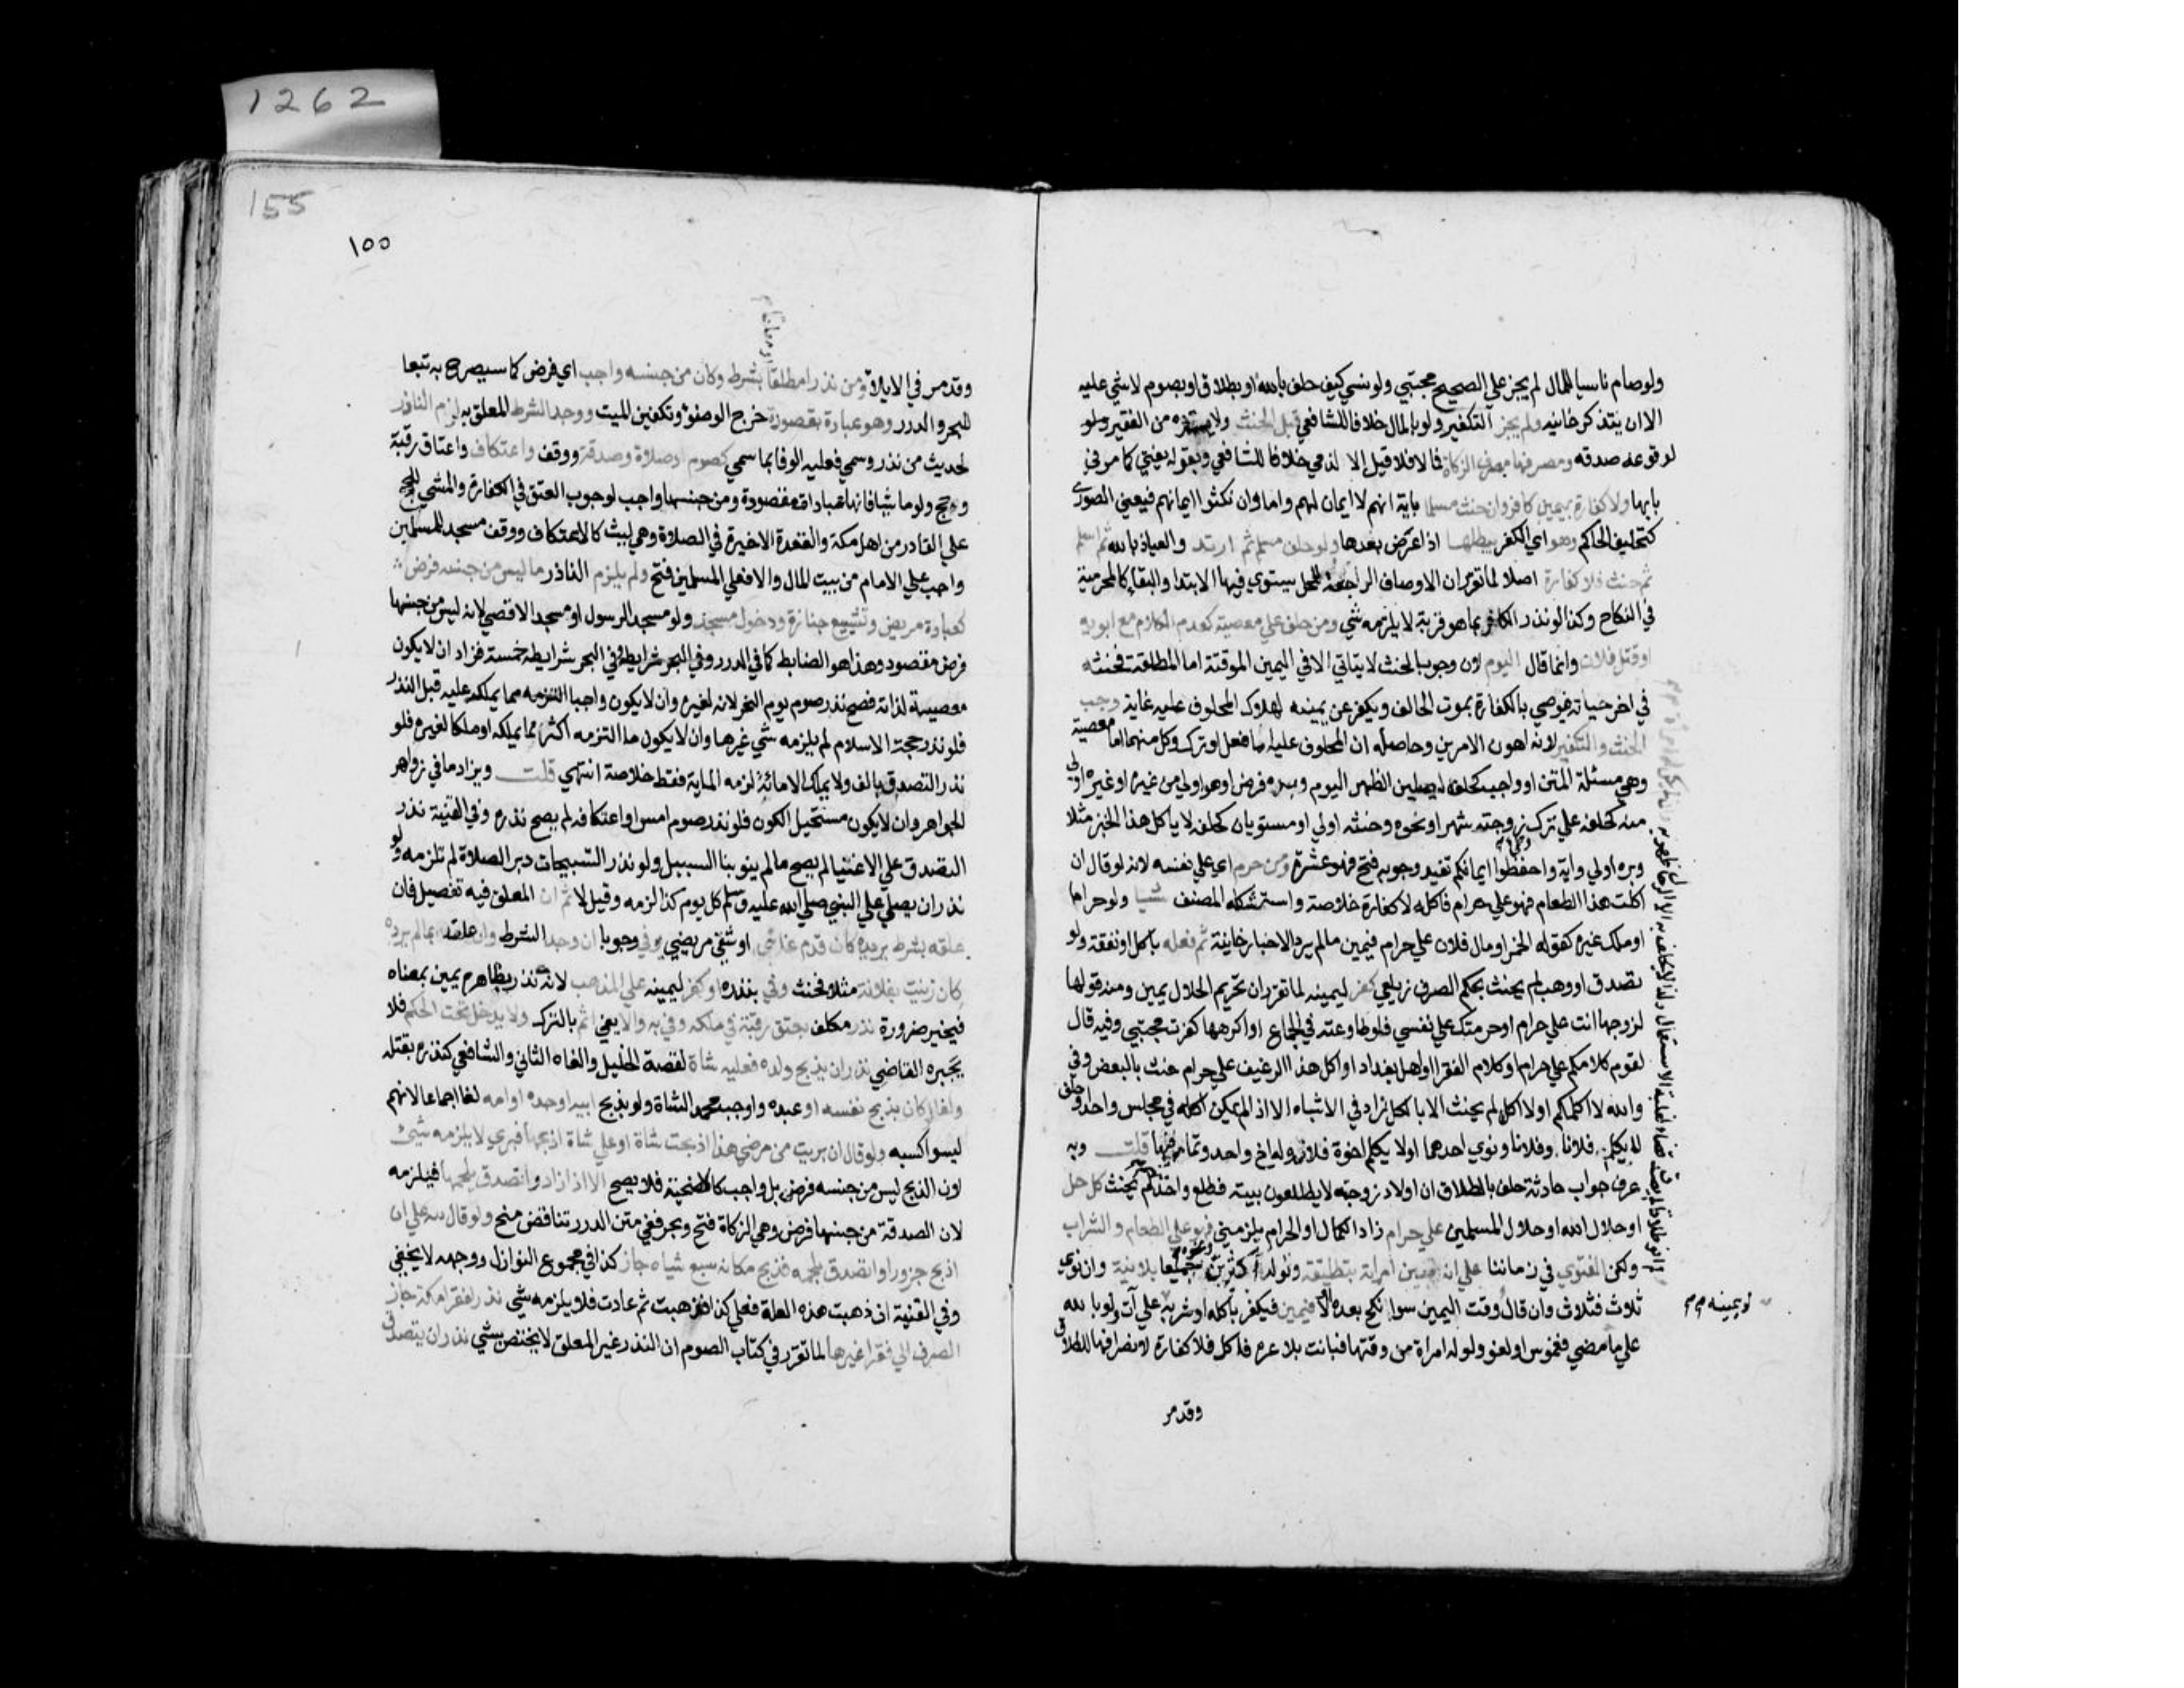 ولو صام ناسيا للمال لم يجز علي الصحيح مجتبي ولو نسي كيف حلف بالله او بطلاق او بصوم لا شي عليه
الا ان يتذكر خانيه ولم يجز التكفير ولو بالمال خلافا للشافعي قبل الحنث ولا يسترده من الفقير
لوقوعه صدقه ومصرفها مصرف الزكاة فما لا فلا قيل الا لذمي خلافا للشافعي وبقوله يفتي كما مر في
بابها ولا كفارة بيمين كافر وان حنث مسلما باية انهم لا ايمان لهم واما وان نكثوا ايمانهم فيعني الصوري
كتحليف الحاكم وهو اي الكفر يبطلها اذا عرض بعدها ولو حلف مسلم ثم ارتد والعياذ بالله ثم اسلم
ثم حنث فلا كفارة اصلا لما تقرر ان الاوصاف الراجعة للمحل يستوي فيها الابتدا والبقا كالمحرمية
في النكاح وكذا لو نذر الكافر بما هو قربة لا يلزمه شي ومن حلف علي معصية كعدم الكلام مع ابويه
او قتل فلان وانما قال اليوم لان وجوب الحنث لا يتاتي الا في اليمين الموقتة اما المطلقة فحنثه
في اخر حياته فيوصي بالكفارة بموت الحالف ويكفر عن يمينه لهلاك المحلوف عليه غاية وجب
الحنث والتكفير لانه اهون الامرين وحاصله ان المحلوف عليه اما فعل او ترك وكل منهما اما معصية
وهي مسئلة المتن او واجب كحلفه ليصلين الظهر اليوم وبره فرض او هو اولي من غيره او غيره اولي
منه كحلفه علي ترك زوجته شهرا ونحوه وحنثه اولي او مستويان كحلفه لا ياكل هذا الخبز مثلا
وبره اولي واية واحفظوا ايمانكم تفيد وجوبه فتح فهو عشرة ومن حرم اي علي نفسه لانه لو قال ان
اكلت هذا الطعام فهو علي حرام فاكله لا كفارة خلاصة واستشكله المصنف شيا ولو حراما
او ملك غيره كقوله الخمر او مال فلان علي حرام فيمين ما لم يرد الاخبار خانية ثم فعله باكل او نفقة ولو
تصدق او وهب لم يحنث بحكم العرف زيلعي كفر ليمينه لما تقرر ان تحريم الحلال يمين ومنه قولها
لزوجها انت علي حرام او حرمتك علي نفسي فلو طاوعته في الجماع او اكرهها كفرت مجتبي وفيه قال
لقوم كلامكم علي حرام او كلام الفقرا او اهل بغداد او اكل هذا الرغيف علي حرام حنث بالبعض وفي
والله لا اكلمكم او لا اكل لم يحنث الا بالكل زاد في الاشباه الا اذا لم يمكن اكله في مجلس واحد او حلف
لا يكلم فلانا وفلانا ونوي احدهما او لا يكلم اخوة فلان وله اخ واحد وتمامه فيها قلت وبه
عرف جواب حادثة حلف بالطلاق ان اولاد زوجته لا يطلعون بيته فطلع واحد منهم لم يحنث كل حل
او حلال الله او حلال المسلمين علي حرام زاد الكمال او الحرام يلزمني فهو علي الطعام والشراب
ولكن الفتوي في زماننا علي انه تبين امراته بتطليقة ولو له اكثر بن جميعا بلا نية وان نوي
ثلاث فثلاث وان قال وقت اليمين سوا نكح بعده ام لا فيمين فيكفر باكله او شربه علي آت ولو بالله
علي ما مضي فغموس او لغو ولو له امراة من وقتها فبانت بلا عدة فاكل فلا كفارة لانصرافها للطلاق
وقد مر
ليمينه م م
1262
155
١٥٥
وقد مر في الايلا ومن نذر نذرا مطلقا بشرط وكان من جنسه واجب اي فرض كما سيصرح به تبعا
للبحر والدرر وهو عبادة مقصودة خرج الوضؤ وتكفين الميت ووجد الشرط المعلق به لزم الناذر
لحديث من نذر وسمي فعليه الوفا بما سمي كصوم وصلاة وصدقة ووقف واعتكاف واعتاق رقبة
وحج ولو ماشيا فانها عبادات مقصودة ومن جنسها واجب لوجوب العتق في الكفارة والمشي للحج
علي القادر من اهل مكة والقعدة الاخيرة في الصلاة وهي لبث كالاعتكاف ووقف مسجد للمسلمين
واجب علي الامام من بيت المال والا فعلي المسلمين فتح ولم يلزم الناذر ما ليس من جنسه فرض
كعيادة مريض وتشييع جنازة ودخول مسجد ولو مسجد الرسول او مسجد الاقصي لانه ليس من جنسها
فرض مقصود وهذا هو الضابط كما في الدرر وفي البحر شرايطه وفي البحر شرايطه خمسة فزاد ان لا يكون
معصية لذاته فصح نذر صوم يوم النحر لانه لغيره وان لا يكون واجبا التزمه مما يملكه عليه قبل النذر
فلو نذر حجة الاسلام لم يلزمه شي غيرها وان لا يكون ما التزمه اكثر مما يملكه او ملكا لغيره فلو
نذر التصدق بالف ولا يملك الا مائة لزمه الماية فقط خلاصة انتهي قلت ويزاد ما في زواهر
الجواهر وان لا يكون مستحيل الكون فلو نذر صوم امس او اعتكافه لم يصح نذره وفي القنية نذر
التصدق علي الاغنيا لم يصح ما لم ينو بنا السبيل ولو نذر التسبيحات دبر الصلاة لم تلزمه ولو
نذر ان يصلي علي النبي صلي الله عليه وسلم كل يوم كذا لزمه وقيل لا ثم ان المعلق فيه تفصيل فان
علقه بشرط يريده كان قدم غائبي او شفي مريضي يوفي وجوبا ان وجد الشرط وان علقه بما لم يرده
كان زنيت بفلانة مثلا فحنث وفي بنذره او كفر ليمينه علي المذهب لانه نذر بظاهره يمين بمعناه
فيخير ضرورة نذر مكلف بعتق رقبة في ملكه وفي به والا يفي اثم بالترك ولا يدخل تحت الحكم فلا
يجبره القاضي نذر ان يذبح ولده فعليه شاة لقصة الخليل والغاه الثاني والشافعي كنذره بقتله
ولغا لو كان بذبح نفسه او عبده واوجب محمد الشاة ولو بذبح ابيه او جده او امه لغا اجماعا لانهم
ليسوا كسبه ولو قال ان بريت من مرضي هذا ذبحت شاة او علي شاة اذبحها فبري لا يلزمه شئ
لان الذبح ليس من جنسه فرض بل واجب كالاضحية فلا يصح الا اذا زاد واتصدق بلحمها فيلزمه
لان الصدقة من جنسها فرض وهي الزكاة فتح وبحر ففي متن الدرر تناقض منح ولو قال لله علي ان
اذبح جزورا واتصدق بلحمه فذبح مكانه سبع شياه جاز كذا في مجموع النوازل ووجهه لا يخفي
وفي القنية ان ذهبت هذه العلة فعلي كذا فذهبت ثم عادت فلا يلزمه شي نذر لفقرا مكة جاز
الصرف الي فقرا غيرها لما تقرر في كتاب الصوم ان النذر غير المعلق لا يختص بشي نذر ان يتصدق